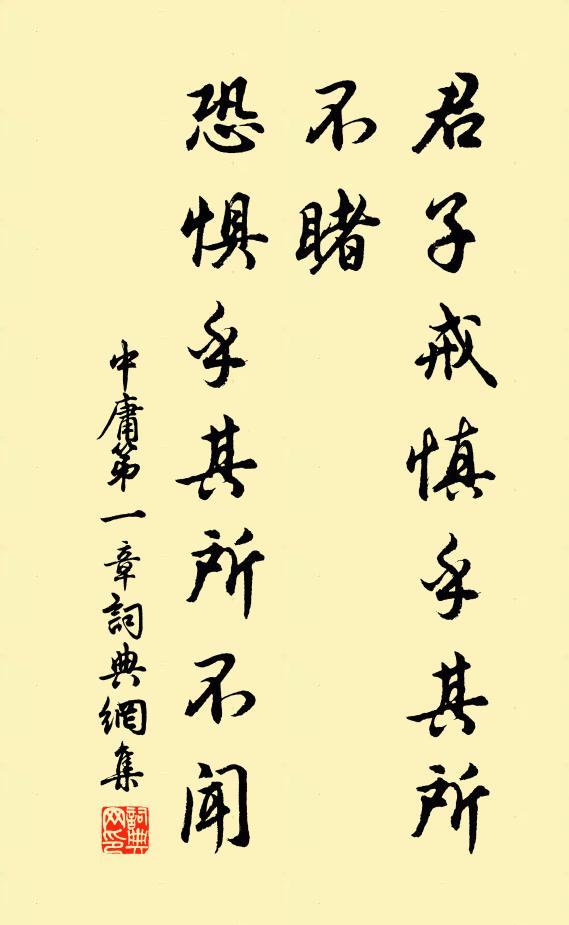 君子戒慎乎其所
不睹
恐惧乎其所不闻
中庸第一章詞典網集
詞典網印